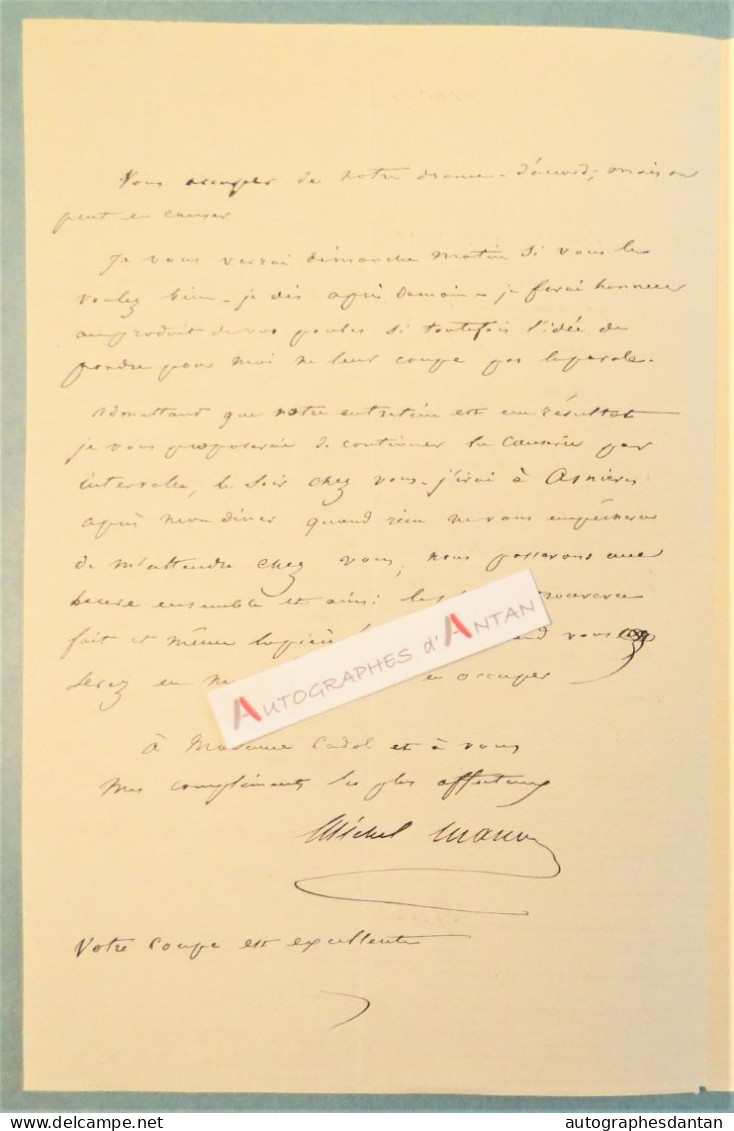 Vous occuper de notre drame - d'accord; mais on
peut en causer
Je vous verrai dimanche matin si vous le
voulez bien - je dis après demain - je ferai honneur
au produit de vos poules si toutefois l'idée de
pondre pour moi ne leur coupe pas la parole.
Admettant que notre entretien est un résultat
je vous proposerai de continuer la causerie par
intervalles, le soir chez vous - j'irai à Asnières
après mon diner quand rien ne vous empêchera
de m'attendre chez vous; nous passerons une
heure ensemble et ainsi
fait et même vous
serez en en occuper
AUTOGRAPHES d'ANTAN
à Madame Cadol et à vous
Mes compliments les plus affectueux
Michel
Votre coupe est excellente
delcampe.net
autographesdantan